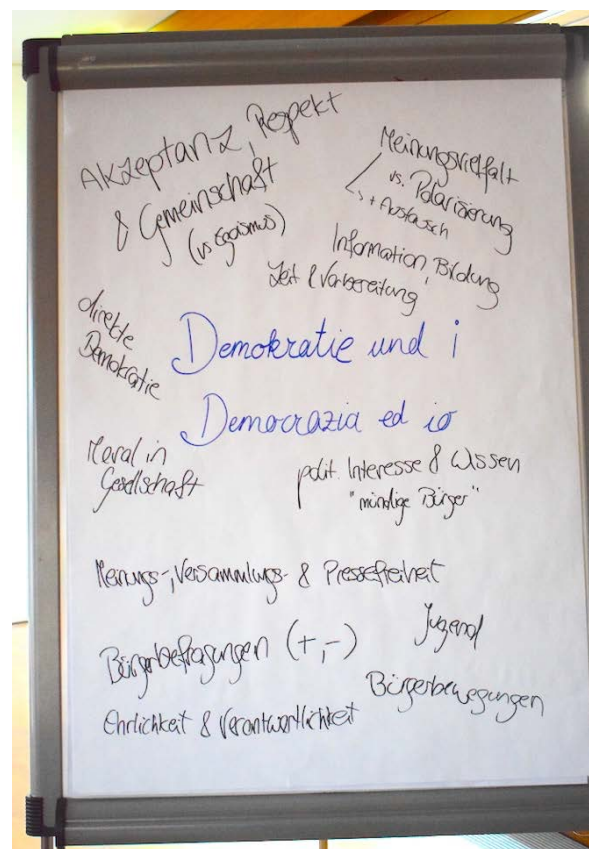 Akzeptanz, Respekt
& Gemeinschaft
(vs Egoismus)
Meinungsvielfalt
vs. Polarisierung
+ Austausch
Information, Bildung
Zeit & Vorbereitung
direkte
Demokratie
Demokratie und i
Democrazia ed io
Moral in
Gesellschaft
polit. Interesse & Wissen
"mündige Bürger"
Meinungs-, Versammlungs- & Pressefreiheit
Jugend
Bürgerbefragungen (+,-)
Bürgerbewegungen
Ehrlichkeit & Verantwortlichkeit